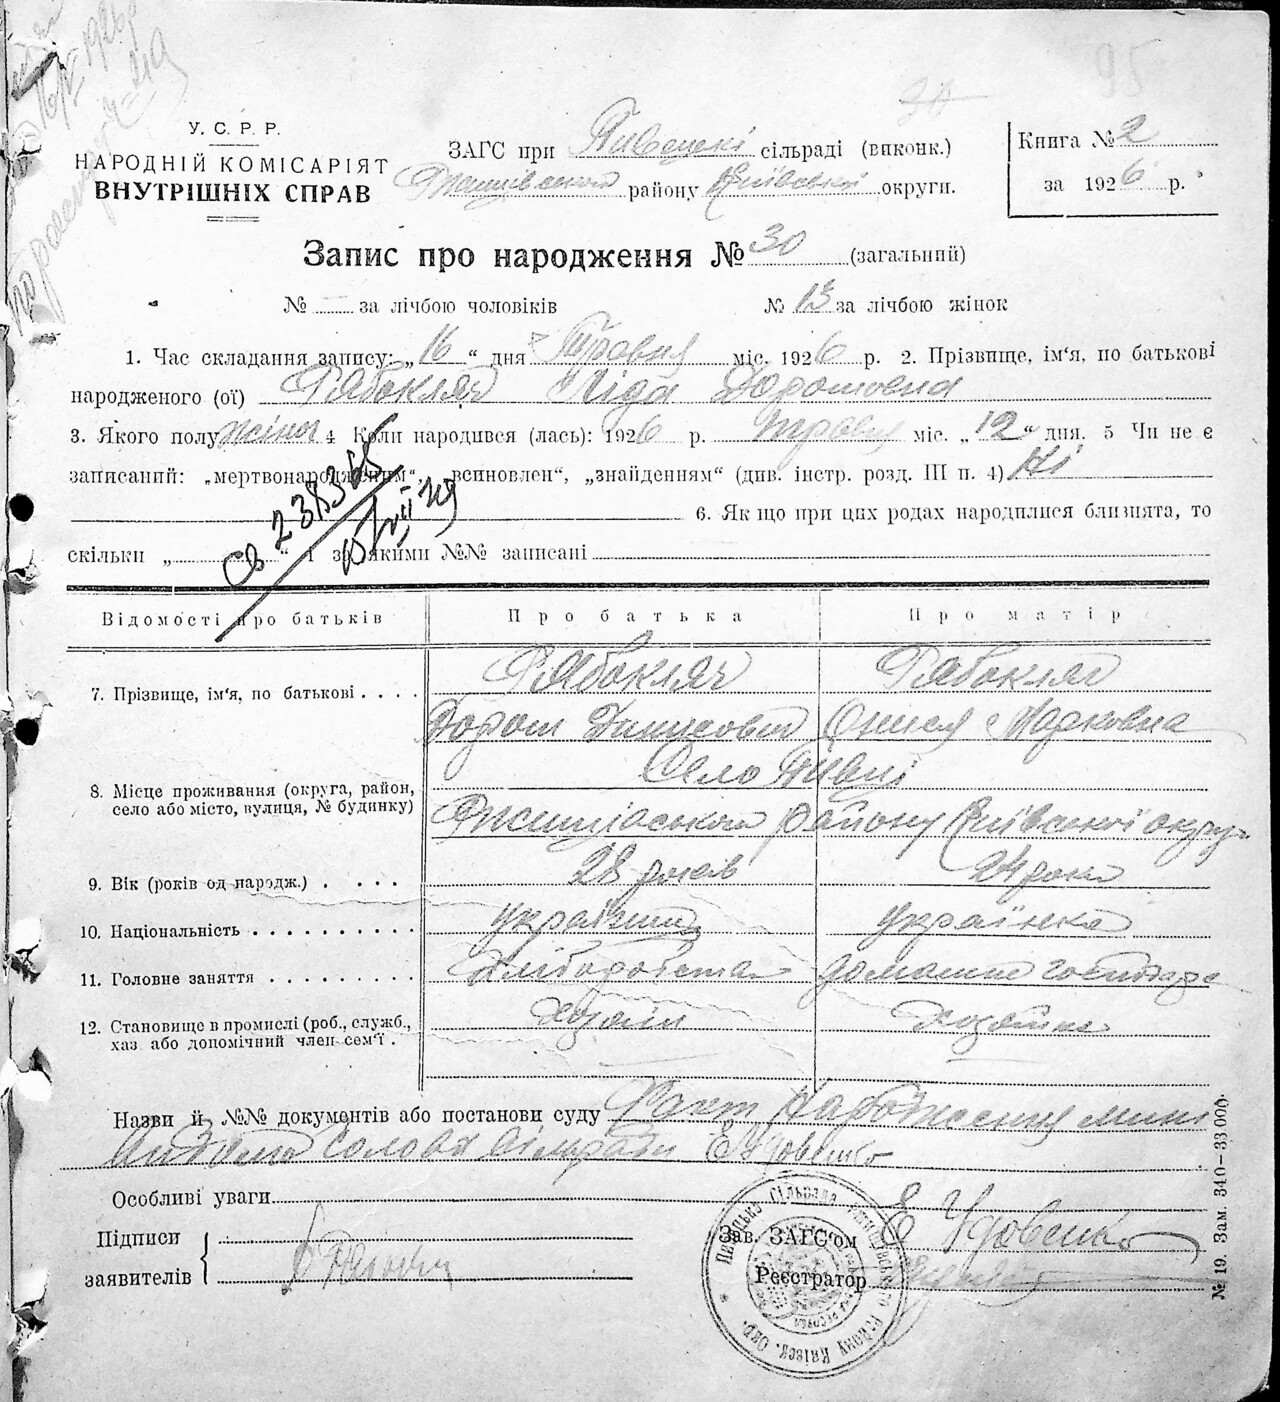 95
У. С. Р. Р.
НАРОДНІЙ КОМІСАРІЯТ
ВНУТРІШНІХ СПРАВ
ЗАГС при Пивецькі сільраді (виконк.)
району Київської округи.
Книга № 2
за 1926 р.
Запис про народження № 30 (загальний)
№ — за лічбою чоловіків № 13 за лічбою жінок
1. Час складання запису: „16“ дня Травня міс. 1926 р. 2. Прізвище, ім'я, по батькові
народженого (ої) Рябокляч Ліда Дорошовна
3. Якого полу жіноч 4 Коли народився (лась): 1926 р. травня міс. „12“ дня. 5 Чи не є
записаний: „мертвонародженим“, „всиновлен“, „знайденням“ (див. інстр. розд. III п. 4) Ні
6. Якщо при цих родах народилися близнята, то
скільки „ “ і за якими №№ записані
Св 238365
Відомості про батьків Про батька Про матір
7. Прізвище, ім'я, по батькові . . . . Рябокляч Рябокляч
Дорош Денисович Онися Марковна
8. Місце проживання (округа, район, село або місто, вулиця, № будинку) Село Пивці
Ржищівського району Київської округи
9. Вік (років од народж.) . . . . 28 років 24 роки
10. Національність . . . . . . . . . . українец українка
11. Головне заняття . . . . . . . Хлібороб домашнє господар
12. Становище в промислі (роб., служб., хаз або допомічний член сем'ї . Хозяїн Хозяйка
Назви й №№ документів або постанови суду Факт народження мині
Голова сільради Е Удовенко
Особливі уваги
Підписи
заявителів
Зав. ЗАГС'ом Е Удовенко
Реєстратор
№ 19. Зам. 340–33 000.